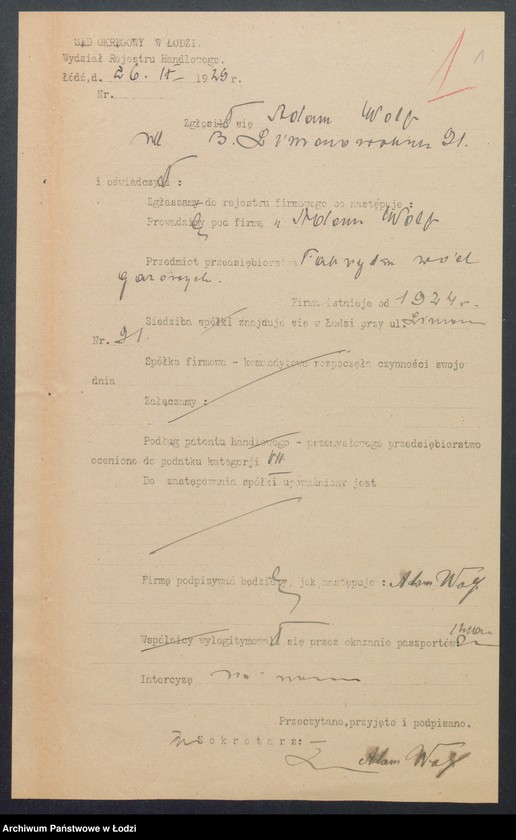 SĄD OKRĘGOWY W ŁODZI.
Wydział Rejestru Handlowego.
Łódź, d. 26. IX 1929 r.
Nr.
1
1
Zgłosił się Adam Wolf
B. Limanowskiego 91.
i oświadczył :
Zgłaszamy do rejestru firmowego co następuje :
Prowadzę pod firmą „ Adam Wolf
Przedmiot przedsiębiorstwa Fabryka wód
gazowych.
Firma istnieje od 1924 r.
Siedziba spółki znajduje się w Łodzi przy ul. Liman
Nr. 91.
Spółka firmowa - komandytowa rozpoczęła czynności swoje
dnia
Załączamy :
Podług patentu handlowego - przemysłowego przedsiębiorstwo
ocenione do podatku kategorji VII
Do zastępowania spółki upoważniony jest
Firmę podpisywać będzie, jak następuje : Adam Wolf
Wspólnicy wylegitymował się przez okazanie paszportów
Intercyzę
Przeczytano, przyjęto i podpisano.
Sekretarz: —
Adam Wolf
Archiwum Państwowe w Łodzi